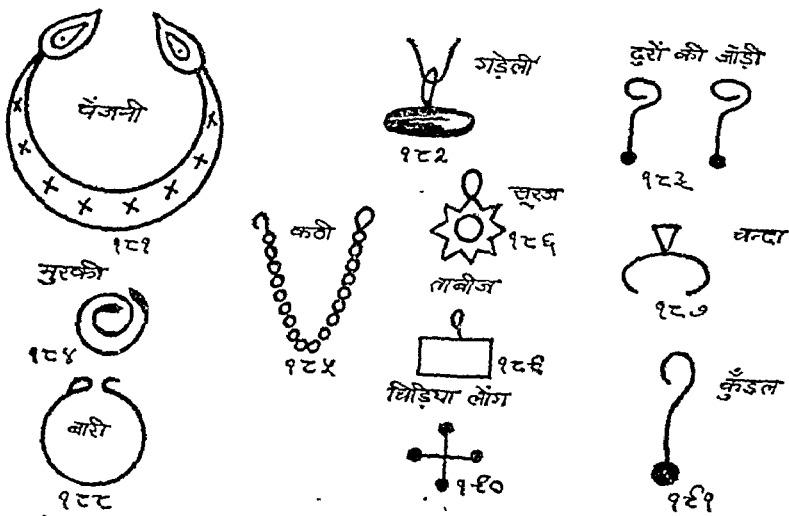 पेंजनी
१८१
गड़ेली
१८२
दुरों की जोड़ी
१८३
मुरकी
१८४
कठी
१८५
सूरज
१८६
चन्दा
१८७
बारी
१८८
ताबीज
१८९
चिड़िया लोंग
१९०
कुँडल
१९१